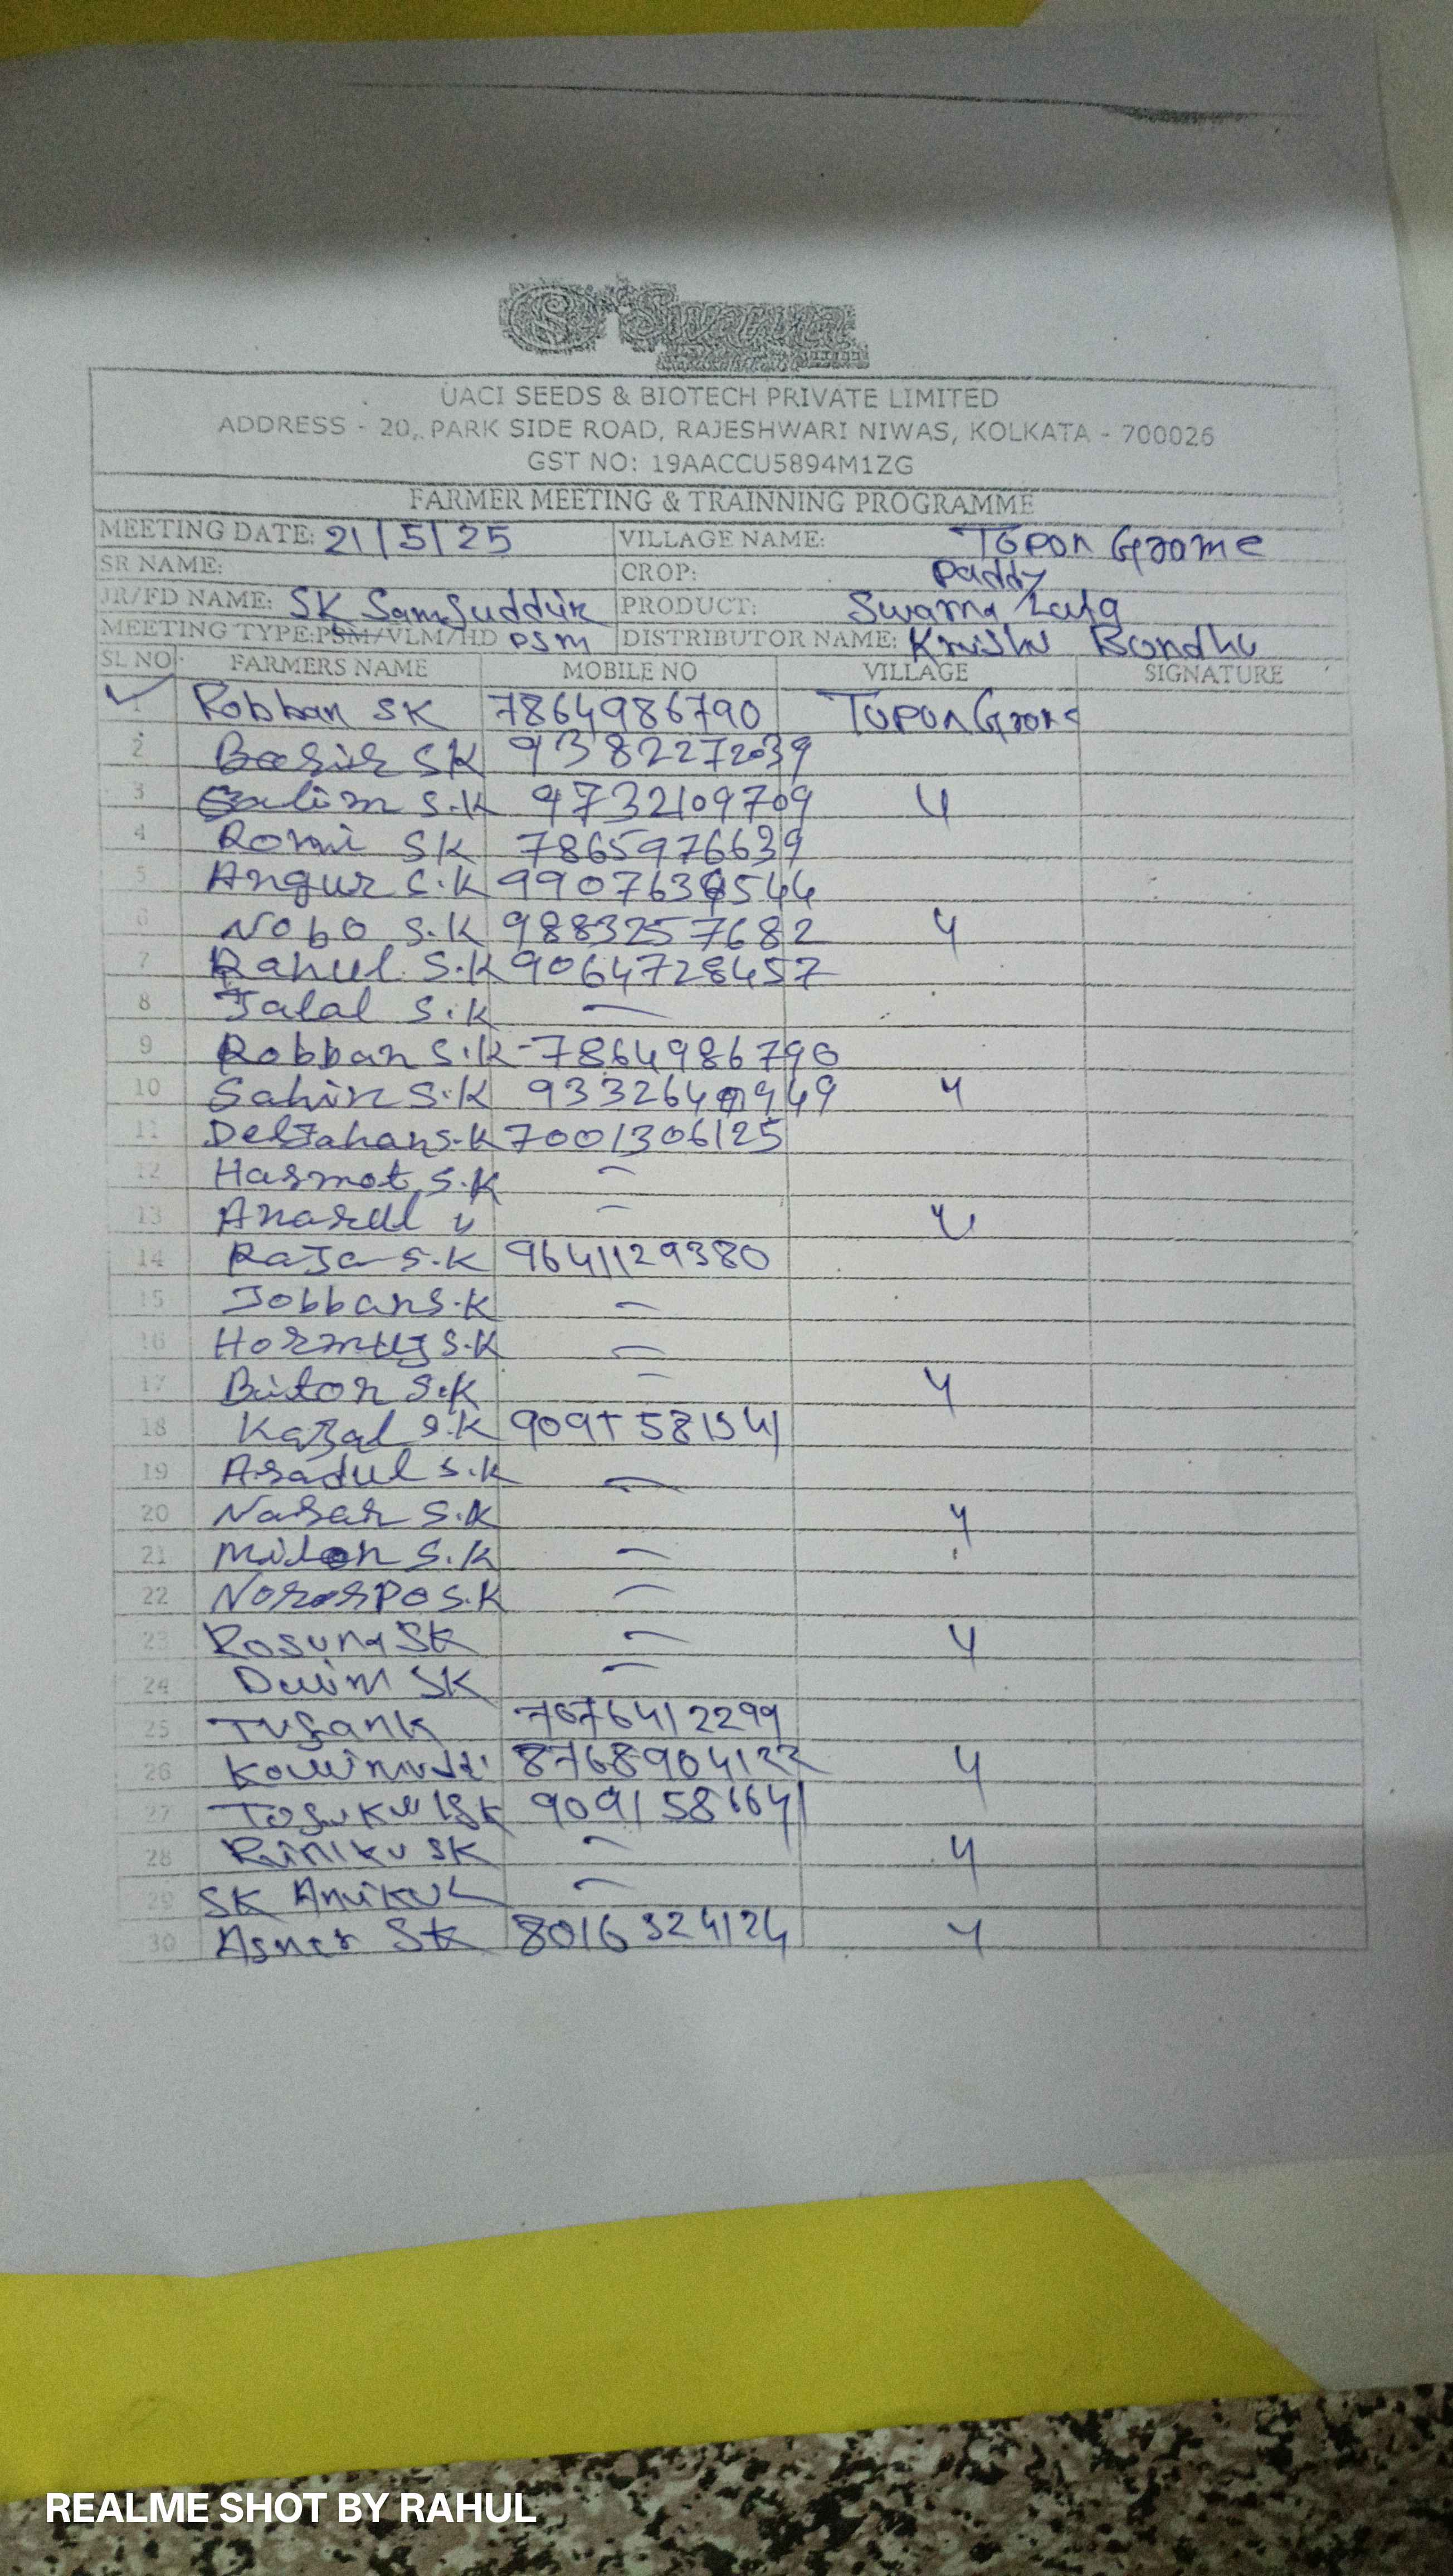 Swarna
UACI SEEDS & BIOTECH PRIVATE LIMITED
ADDRESS - 20, PARK SIDE ROAD, RAJESHWARI NIWAS, KOLKATA - 700026
GST NO: 19AACCU5894M1ZG
FARMER MEETING & TRAINNING PROGRAMME
MEETING DATE: 21/5/25 VILLAGE NAME: TOPON Grome
SR NAME: CROP: Paddy
JR/FD NAME: SK Samsuddin PRODUCT: Swarna
MEETING TYPE:PSM/VLM/HD PSM DISTRIBUTOR NAME: Krishi Bondhu
SL NO FARMERS NAME MOBILE NO VILLAGE SIGNATURE
1 Robban SK 7864986790 TOPON
2 Basir SK 9382272039
3 Salim S.K 9732109709 "
4 Romi SK 7865976639
5 Angur S.K
6 Nobo S.K 9883257682 "
7 Rahul S.K 9064728457
8 Jalal S.K —
9 Robban S.K - 7864986790
10 Sahin S.K "
11 S.K 7001306125
12 Hasmot S.K —
13 Anarul " — "
14 Raja S.K 9641129380
15 Jobban S.K —
16 Hormuj S.K —
17 Biton S.K — "
18 Kajal S.K
19 Asadul S.K —
20 S.K "
21 Milon S.K —
22 S.K —
23 SK — "
24 SK —
25
26 8768904122 "
27
28 Riniku SK — "
29 SK —
30 SK "
REALME SHOT BY RAHUL